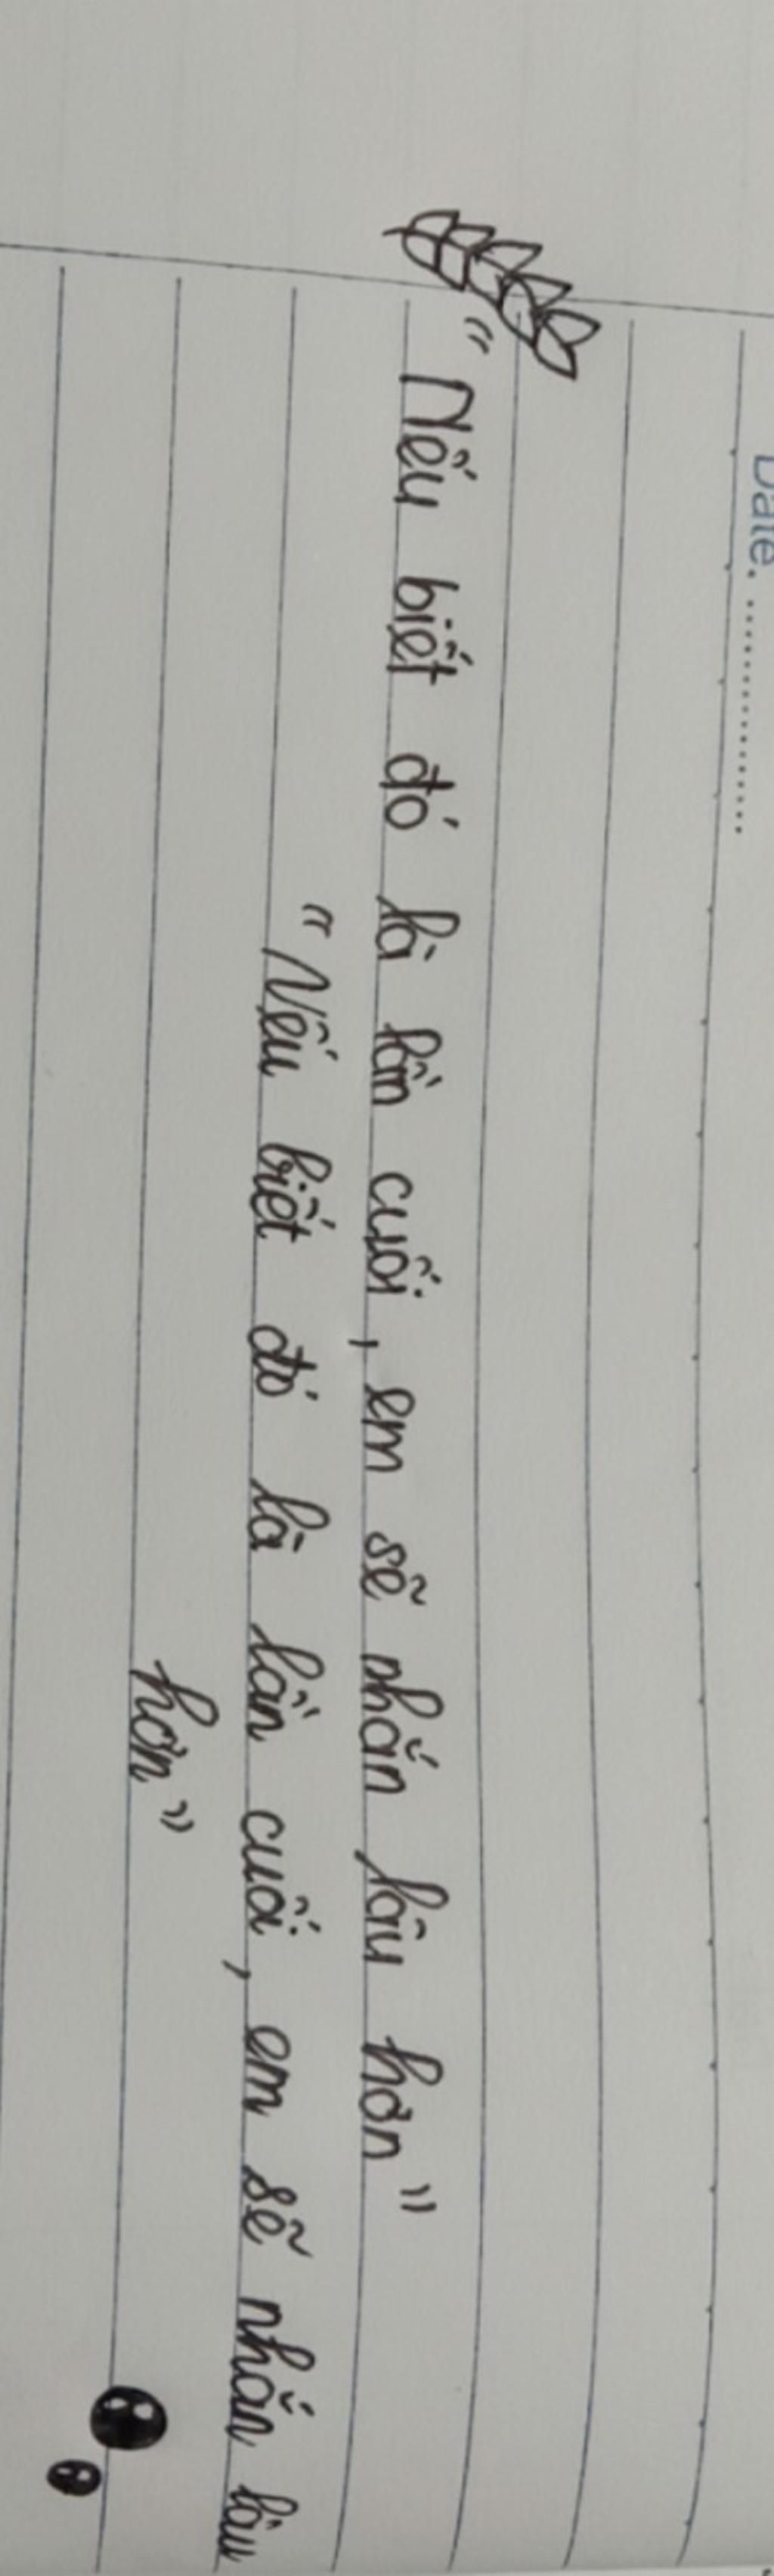 Date. ................
"Nếu biết đó là lần cuối, em sẽ nhắn lâu hơn"
"Nếu biết đó là lần cuối, em sẽ nhắn lâu
hơn"